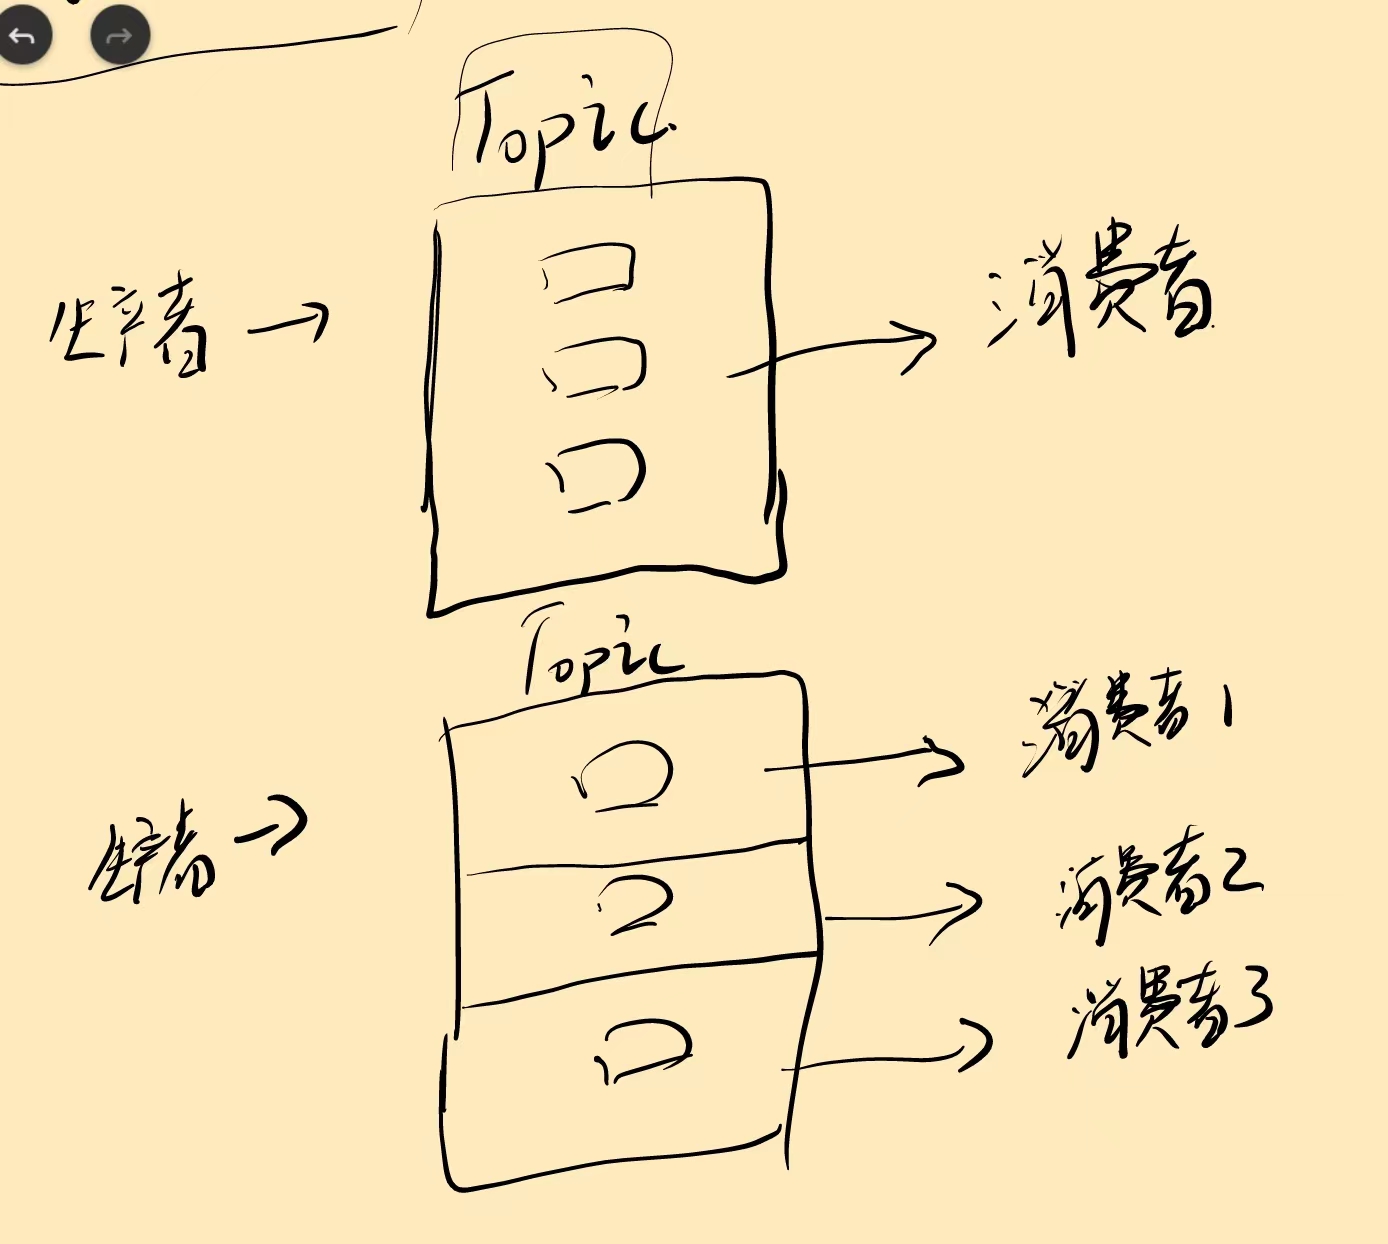 Topic
生产者
消费者
Topic
消费者1
生产者
消费者2
消费者3